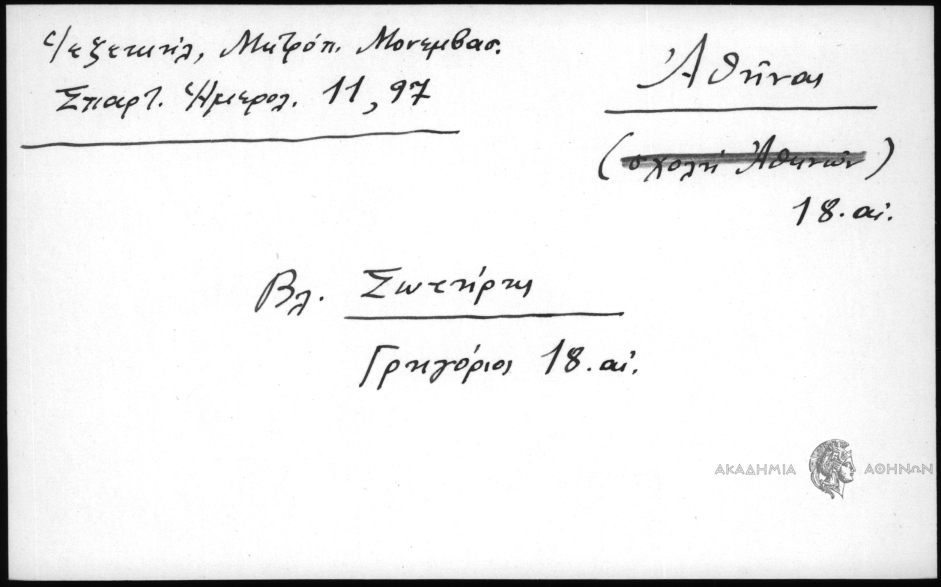 Μητρόπ. Μονεμβασ.
Σπαρτ. Ἡμερολ. 11, 97
Ἀθήναι
(σχολή Ἀθηνών)
18. αἰ.
Βλ. Σωτήρης
Γρηγόριος 18. αἰ.
ΑΚΑΔΗΜΙΑ ΑΘΗΝΩΝ